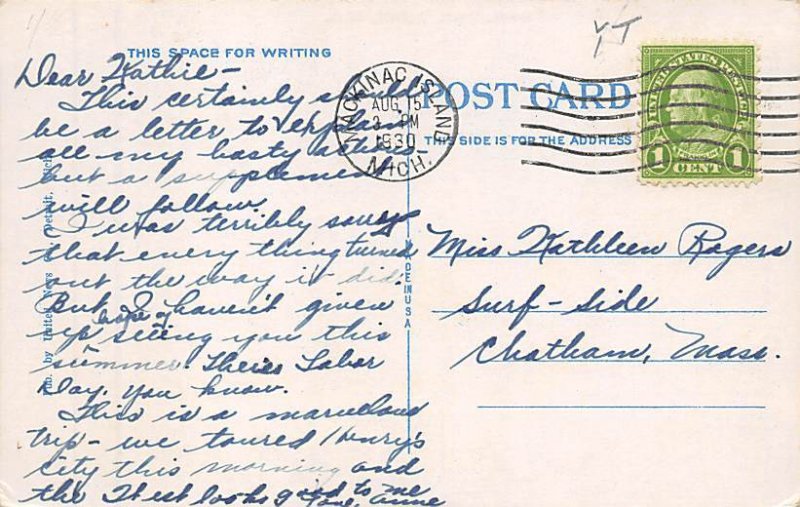 YT
THIS SPACE FOR WRITING
Dear Kathie-
This certainly should
be a letter to explain
all my hasty
but a supplement
will follow.
I was terribly sorry
that every thing turned
out the way it did.
But I haven't given
up hope of seeing you this
summer. Theres Labor
Day, you know.
This is a marvelous
trip - we toured Henry's
city this morning and
the West looks good to me
Love, Anne
Pub. by United News Detroit, Mich
MACKINAC ISLAND
AUG 15
3 PM
1930
MICH.
POST CARD
THIS SIDE IS FOR THE ADDRESS
UNITED STATES POSTAGE
1 CENT 1
Miss Kathleen Rogers
Surf-side
Chatham, Mass.
MADE IN USA